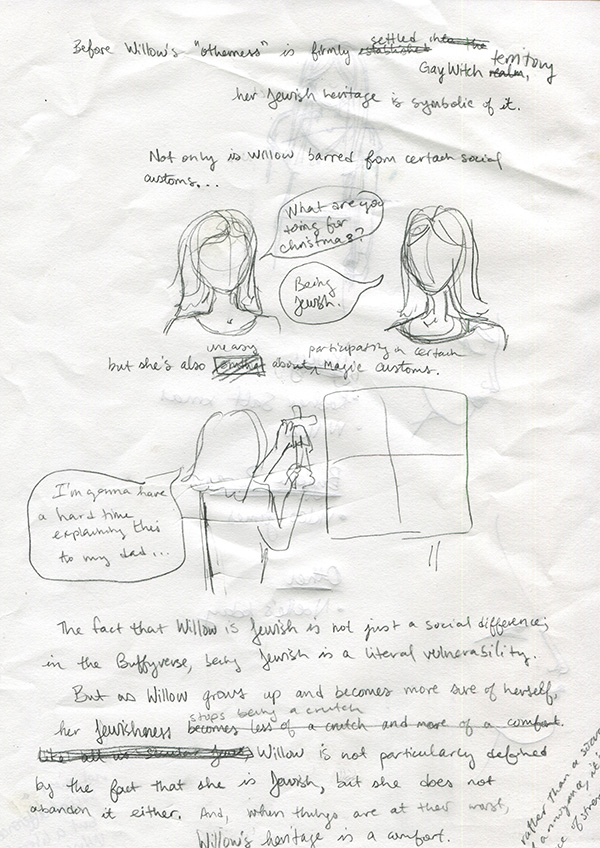 Before Willow's "otherness" is firmly established settled into the
Gay Witch realm, territory
her Jewish heritage is symbolic of it.
Not only is Willow barred from certain social
customs...
What are you
doing for
Christmas?
Being
Jewish.
uneasy participating in certain
but she's also about Magic customs.
I'm gonna have
a hard time
explaining this
to my dad...
The fact that Willow is Jewish is not just a social difference;
in the Buffyverse, being Jewish is a literal vulnerability.
But as Willow grows up and becomes more sure of herself,
stops being a crutch
her Jewishness becomes less of a crutch and more of a comfort.
Willow is not particularly defined
by the fact that she is Jewish, but she does not
abandon it either. And, when things are at their worst,
Willow's heritage is a comfort.
rather than a
annoyance, it
of